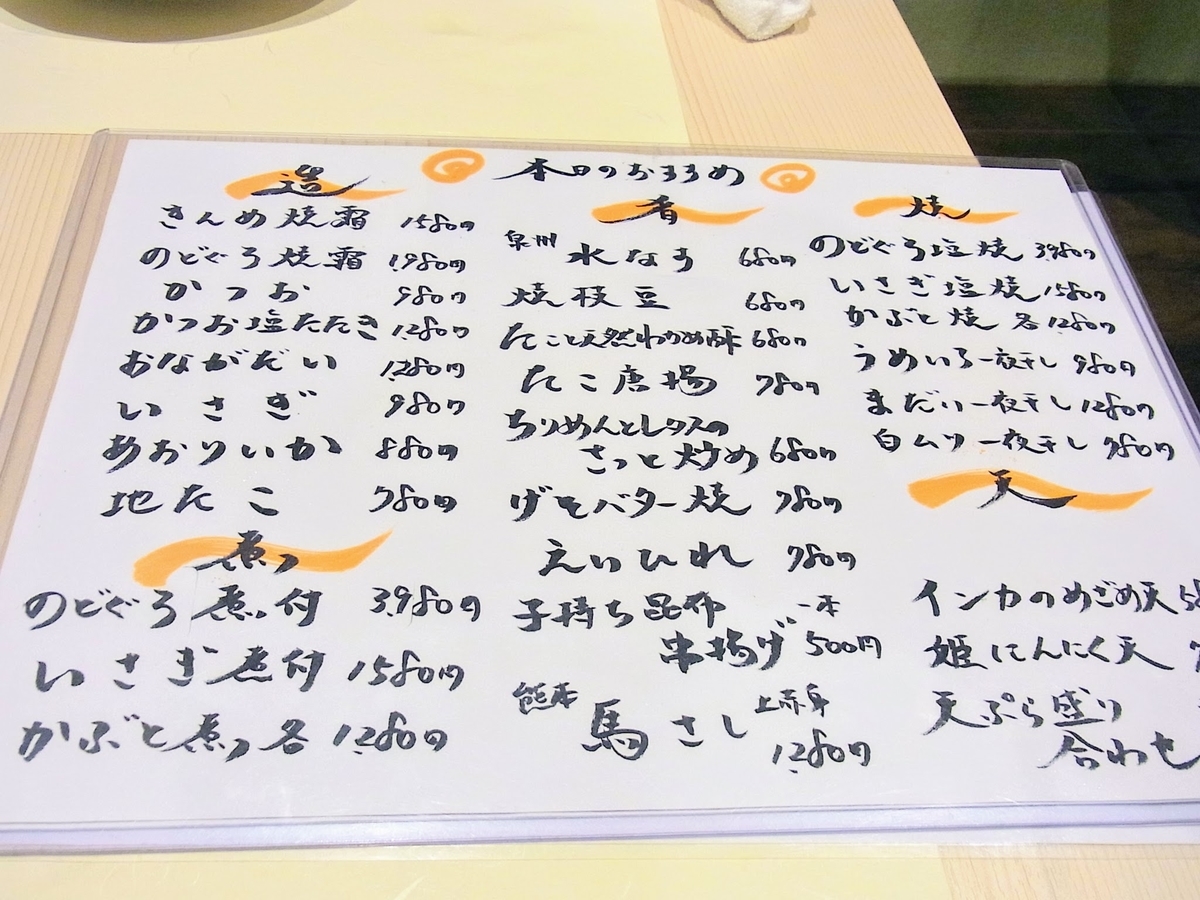 本日のおすすめ
造
きんめ焼霜 1580円
のどぐろ焼霜 1,980円
かつお 980円
かつお塩たたき 1,280円
おながだい 1,280円
いさぎ 980円
あおりいか 880円
地たこ 780円
煮つ
のどぐろ煮つ付 3,980円
いさぎ煮付 1580円
かぶと煮つ各 1,280円
肴
泉州
水なす 680円
焼枝豆 680円
たこと天然わかめ酢 680円
たこ唐揚 780円
ちりめんとレタスの
さっと炒め 680円
げそバター焼 780円
えいひれ 780円
子持ち昆布 一本
串揚げ 500円
熊本
馬さし 上赤身
1,280円
焼
のどぐろ塩焼 3,980円
いさぎ塩焼 1580円
かぶと焼 各1,280円
うめいろ一夜干し 980円
まだい一夜干し 1280円
白ムツ一夜干し 980円
天
インカのめざめ天
姫にんにく天
天ぷら盛り
合わせ